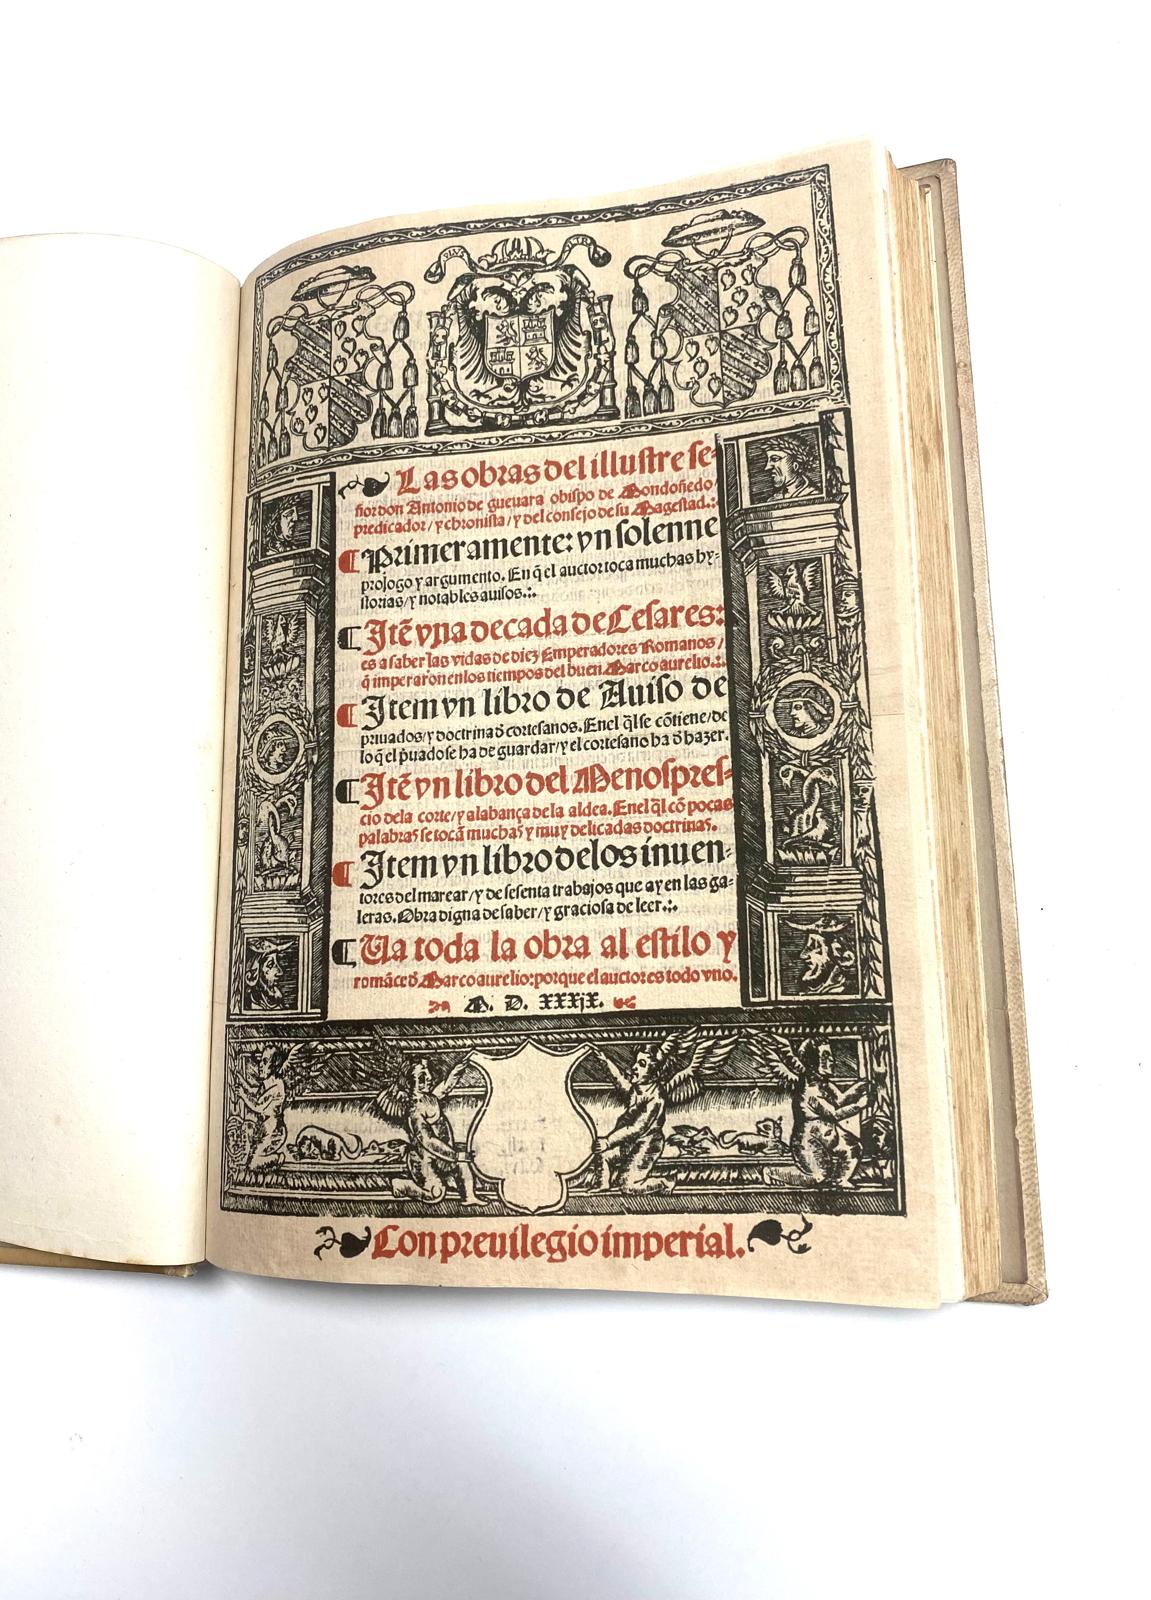 PLVS VLTRA
Las obras del illustre se-
ñor don Antonio de gueuara obispo de Mondoñedo
predicador/ y chronista/ y del consejo de su Magestad.:.
¶ Primeramente: vn solenne
prologo y argumento. En q̃ el auctor toca muchas hy-
storias/ y notables auisos.:.
¶ Itẽ vna decada de Cesares:
es a saber las vidas de diez Emperadores Romanos/
q̃ imperaron en los tiempos del buen Marco aurelio.:.
¶ Item vn libro de Auiso de
priuados/ y doctrina d̃ cortesanos. Enel q̃l se cõtiene/ de
lo q̃ el p̃uado se ha de guardar/ y el cortesano ha d̃ hazer.
¶ Itẽ vn libro del Menospres-
cio dela corte/ y alabança de la aldea. Enel q̃l cõ pocas
palabras se tocã muchas y muy delicadas doctrinas.
¶ Item vn libro delos inuen-
tores del marear/ y de sesenta trabajos que ay en las ga-
leras. Obra digna de saber/ y graciosa de leer.:.
¶ Ua toda la obra al estilo y
romãce d̃ Marco aurelio: porque el auctor es todo vno.
M. D. xxxjx.
Con preuilegio imperial.